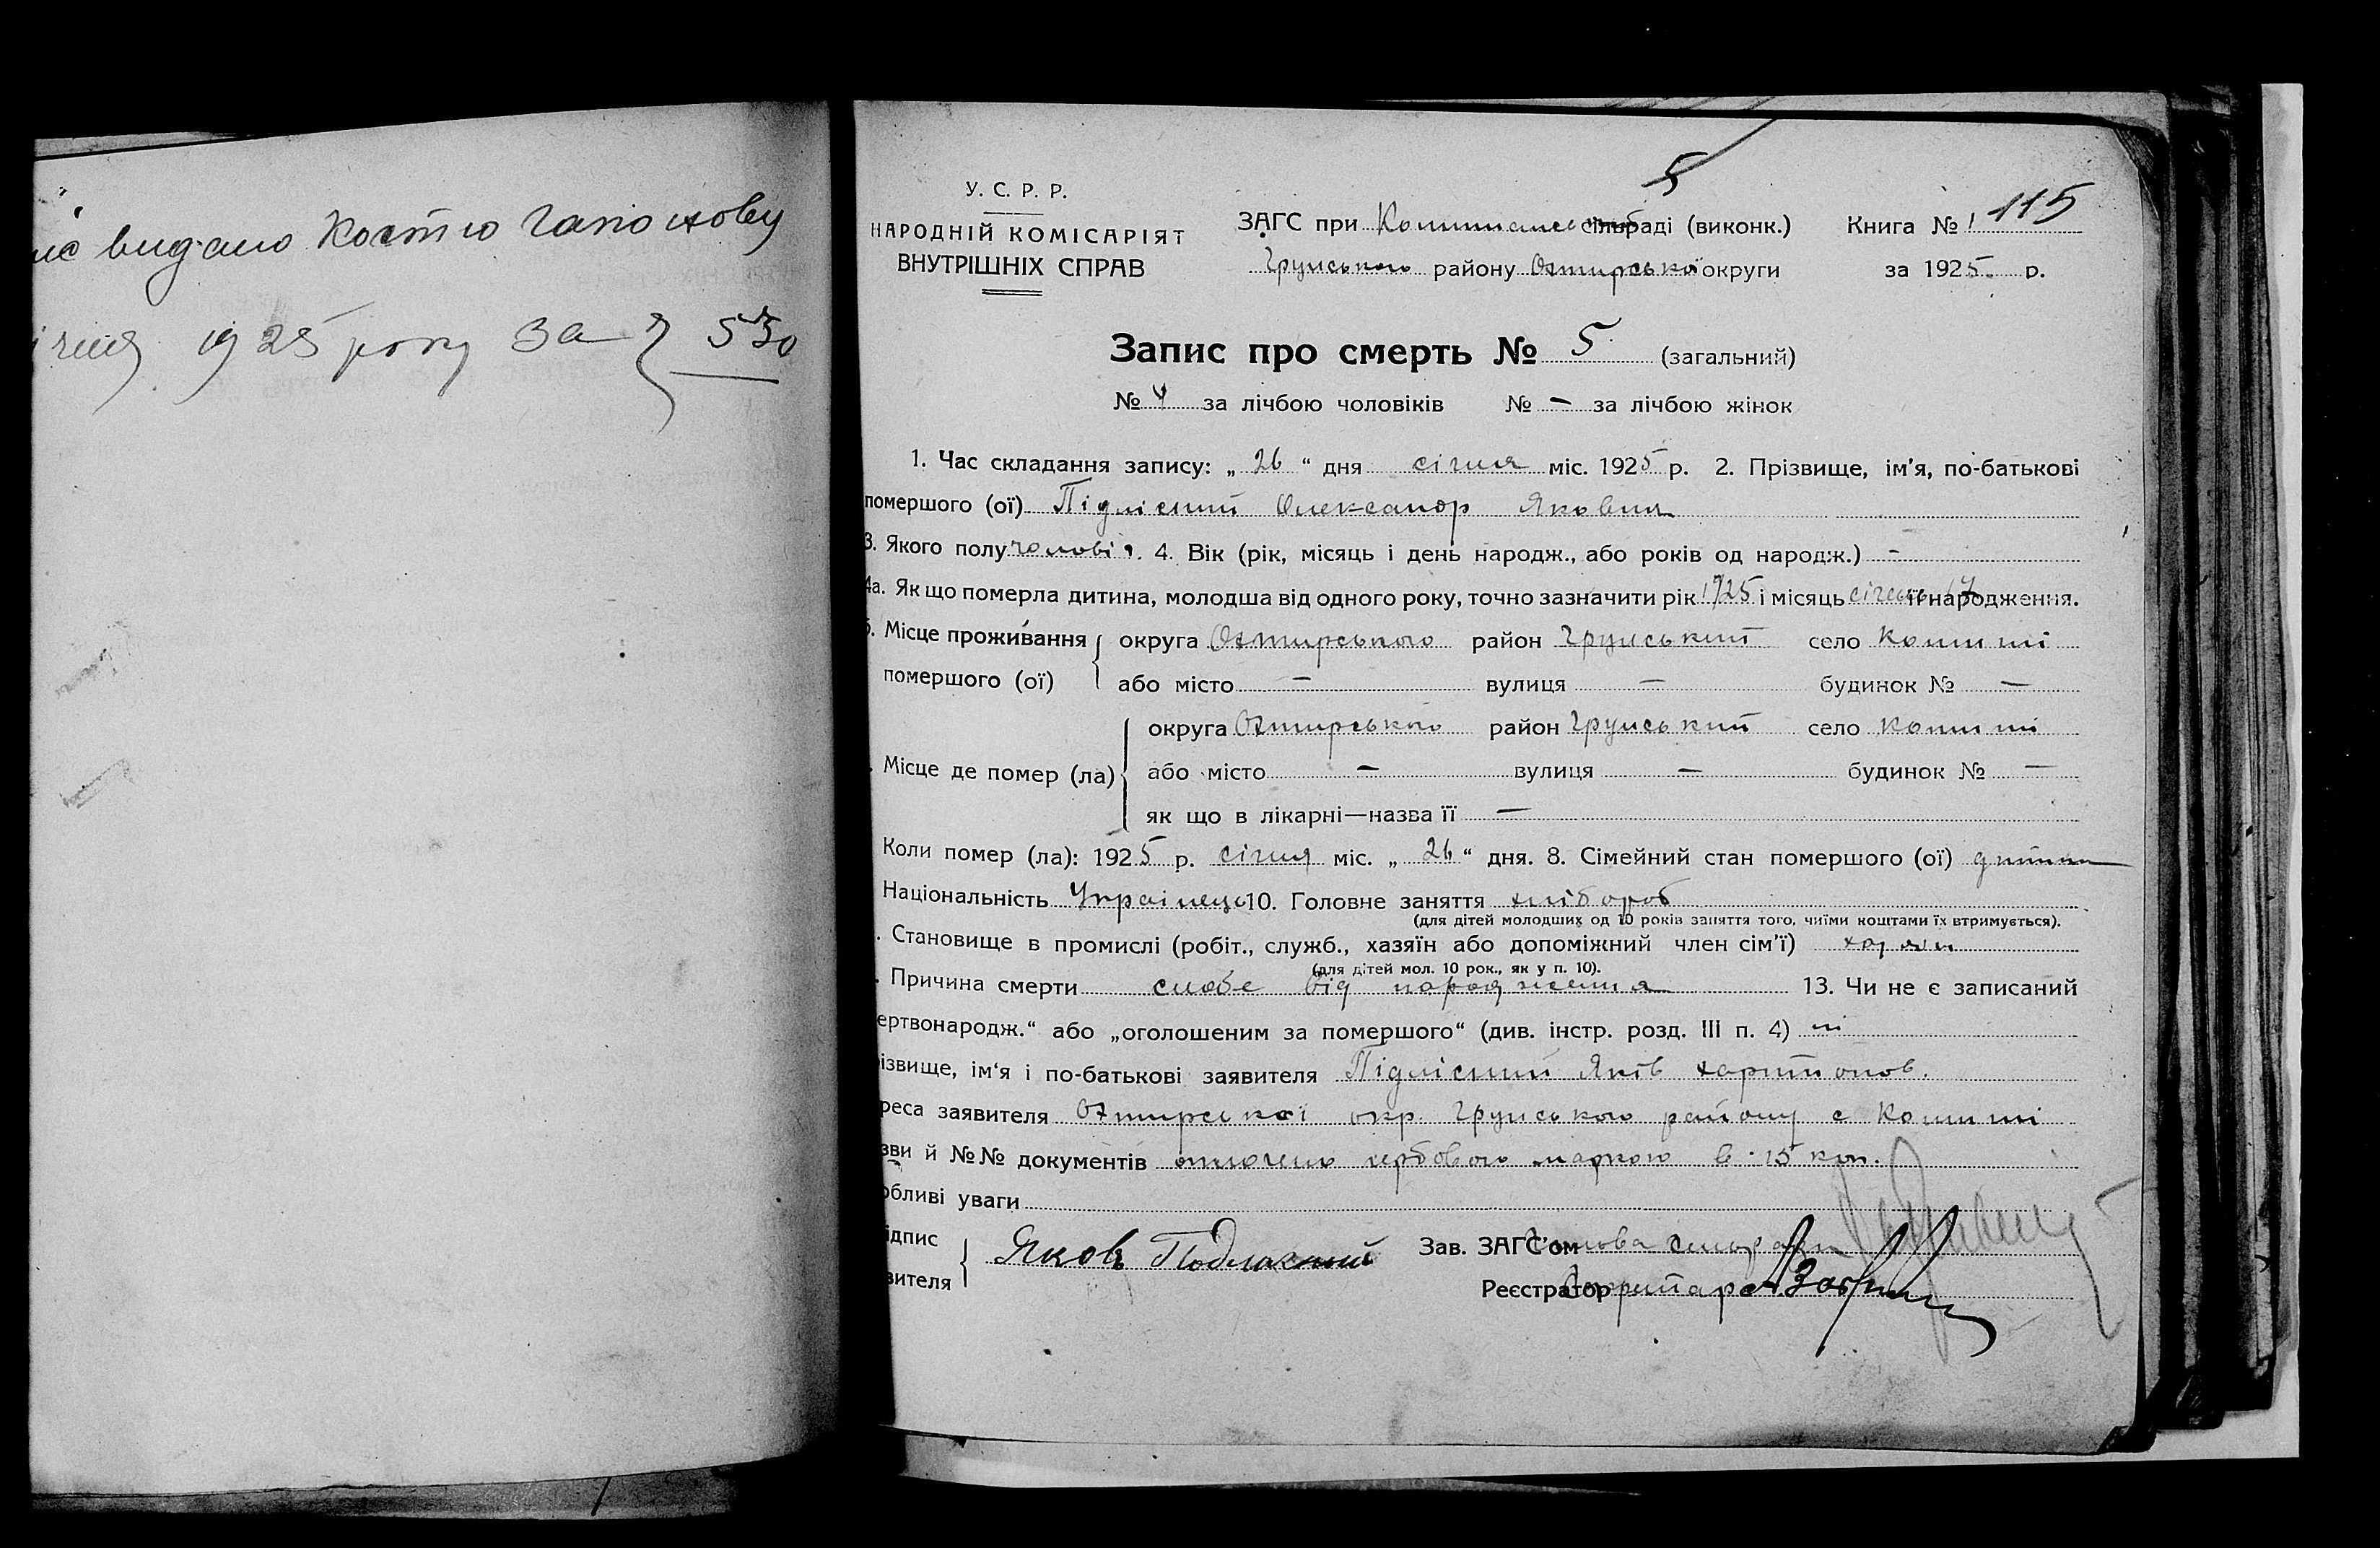 видано Костю Гапонову
1925 року за № 530
5
У. С. Р. Р.
НАРОДНІЙ КОМІСАРІЯТ
ВНУТРІШНІХ СПРАВ
ЗАГС при сільраді (виконк.)
Грунського району Охтирської округи
Книга № 1 115
за 1925 р.
Запис про смерть № 5 (загальний)
№ 4 за лічбою чоловіків № – за лічбою жінок
1. Час складання запису: „ 26 “ дня січня міс. 1925 р. 2. Прізвище, ім'я, по-батькові
помершого (ої) Підлісний Олександр Якович
3. Якого полу чолові. 4. Вік (рік, місяць і день народж., або років од народж.) –
4а. Як що померла дитина, молодша від одного року, точно зазначити рік 1925 і місяць січень 17 її народження.
Місце проживання округа Охтирського район Грунський село Комиші
помершого (ої) або місто – вулиця – будинок № –
округа Охтирського район Грунський село Комиші
Місце де помер (ла) або місто – вулиця – будинок № –
як що в лікарні—назва її –
Коли помер (ла): 1925 р. січня міс. „ 26 “ дня. 8. Сімейний стан помершого (ої) дитина
Національність Українець 10. Головне заняття хлібороб
(для дітей молодших од 10 років заняття того, чиїми коштами їх втримується).
. Становище в промислі (робіт., служб., хазяїн або допоміжний член сім'ї) хазяїн
(для дітей мол. 10 рок., як у п. 10).
. Причина смерти слабе від народження 13. Чи не є записаний
ертвонародж.“ або „оголошеним за помершого“ (див. інстр. розд. III п. 4) ні
ізвище, ім'я і по-батькові заявителя Підлісний Яків Харитонов.
реса заявителя Охтирської окр. Грунського району с Комиші
зви й №№ документів оплочено гербовою маркою в 15 коп.
обливі уваги
ідпис
вителя
Яковъ Подлесный
Зав. ЗАГС'ом Голова сільради
Реєстратор Секретарь